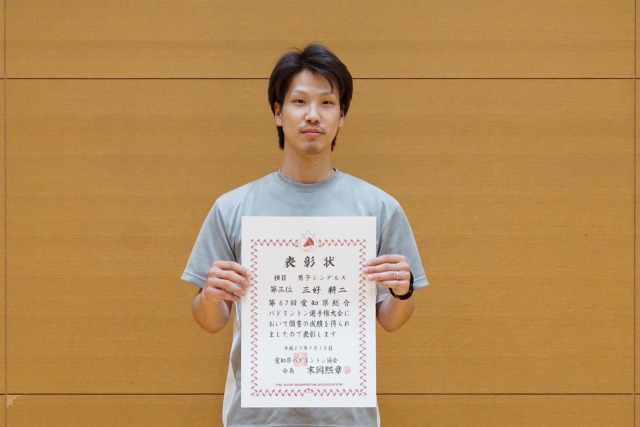 表彰状
種目 男子シングルス
第三位 三好 耕二
第67回愛知県総合
バドミントン選手権大会に
おいて頭書の成績を得られ
ましたので表彰します
平成27年7月12日
愛知県バドミントン協会
会長 末岡熙章
THE AICHI BADMINTON ASSOCIATION